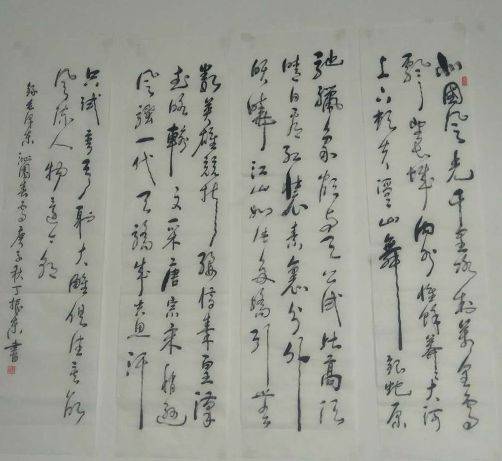 北國风光千里冰封萬里雪
飘望长城内外惟馀莽大河
上下顿失滔山舞银蛇原
驰蠟象欲与天公试比高须
晴日看红裝素裹分外
妖娆江山如此多娇引无
数英雄競折腰惜秦皇漢
武略输文采唐宗宋稍逊
风骚一代天骄成吉思汗
只识弯弓射大雕俱往矣数
风流人物還看今朝
录毛泽东沁園春雪庚子秋丁振东書